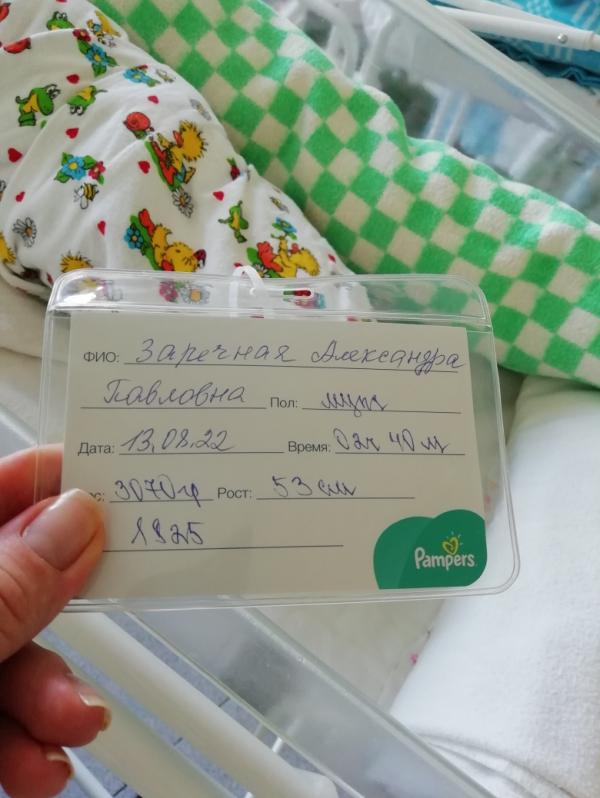 ФИО: Заречная Александра
Павловна Пол: муж
Дата: 13.08.22 Время: 02ч 40м
ес: 3070гр Рост: 53 см
1925
Pampers